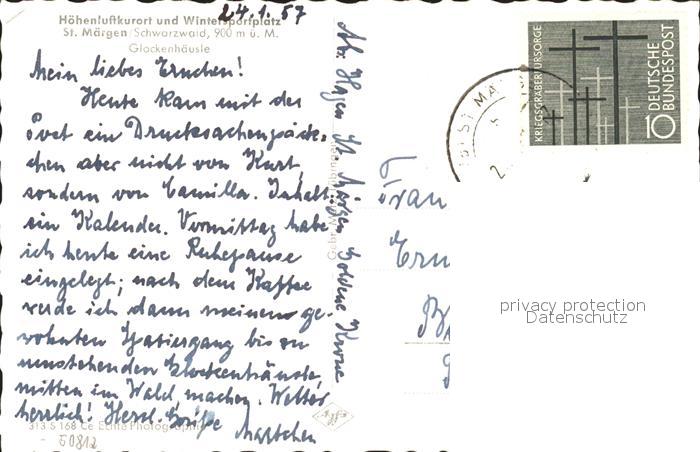 24.1.57
Höhenluftkurort und Wintersportplatz
St. Märgen/Schwarzwald, 900 m ü. M.
Glockenhäusle
Mein liebes Ernchen!
Heute kam mit der
Post ein Drucksachenpäck-
chen aber nicht von Kurt,
sondern von Camilla. Inhalt:
ein Kalender. Vormittag habe
ich heute eine Ruhepause
eingelegt; nach dem Kaffee
werde ich dann meinen ge-
wohnten Spaziergang bis zu
umstehenden Glockenhäusle,
mitten im Wald machen. Wetter
herrlich! Herzl. Grüße
313 S 168 Ce Echte Photographie
E0812
Abs. Hagen St. Märgen Goldene Krone
Gebr. Metz
Agfa
KRIEGSGRÄBERFÜRSORGE
DEUTSCHE
BUNDESPOST
10
ST MÄ
Frau
Ern
privacy protection
Datenschutz